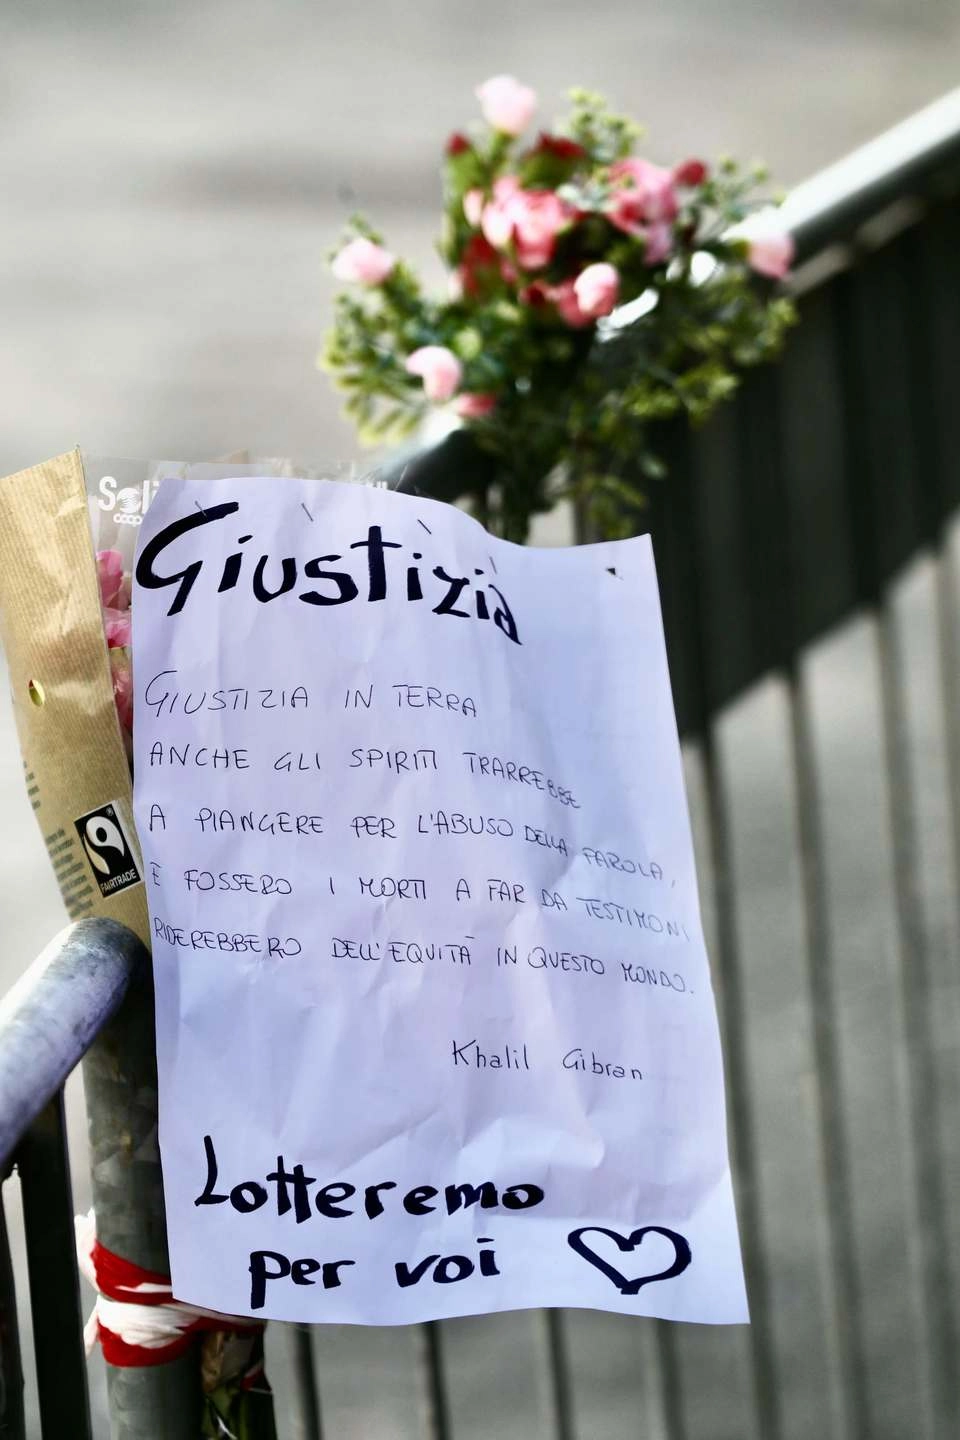 Soli
coop
FAIRTRADE
Giustizia
GIUSTIZIA IN TERRA
ANCHE GLI SPIRITI TRARREBBE
A PIANGERE PER L'ABUSO DELLA PAROLA,
E FOSSERO I MORTI A FAR DA TESTIMONI
RIDEREBBERO DELL'EQUITÀ IN QUESTO MONDO.
Khalil Gibran
Lotteremo
per voi